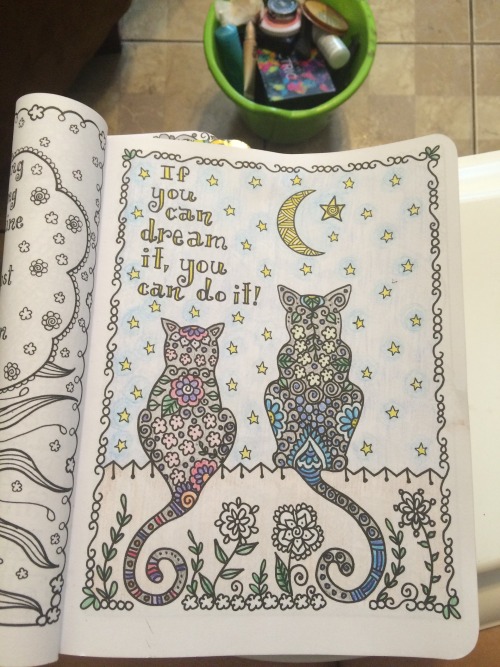 If
you
can
dream
it, you
can do it!